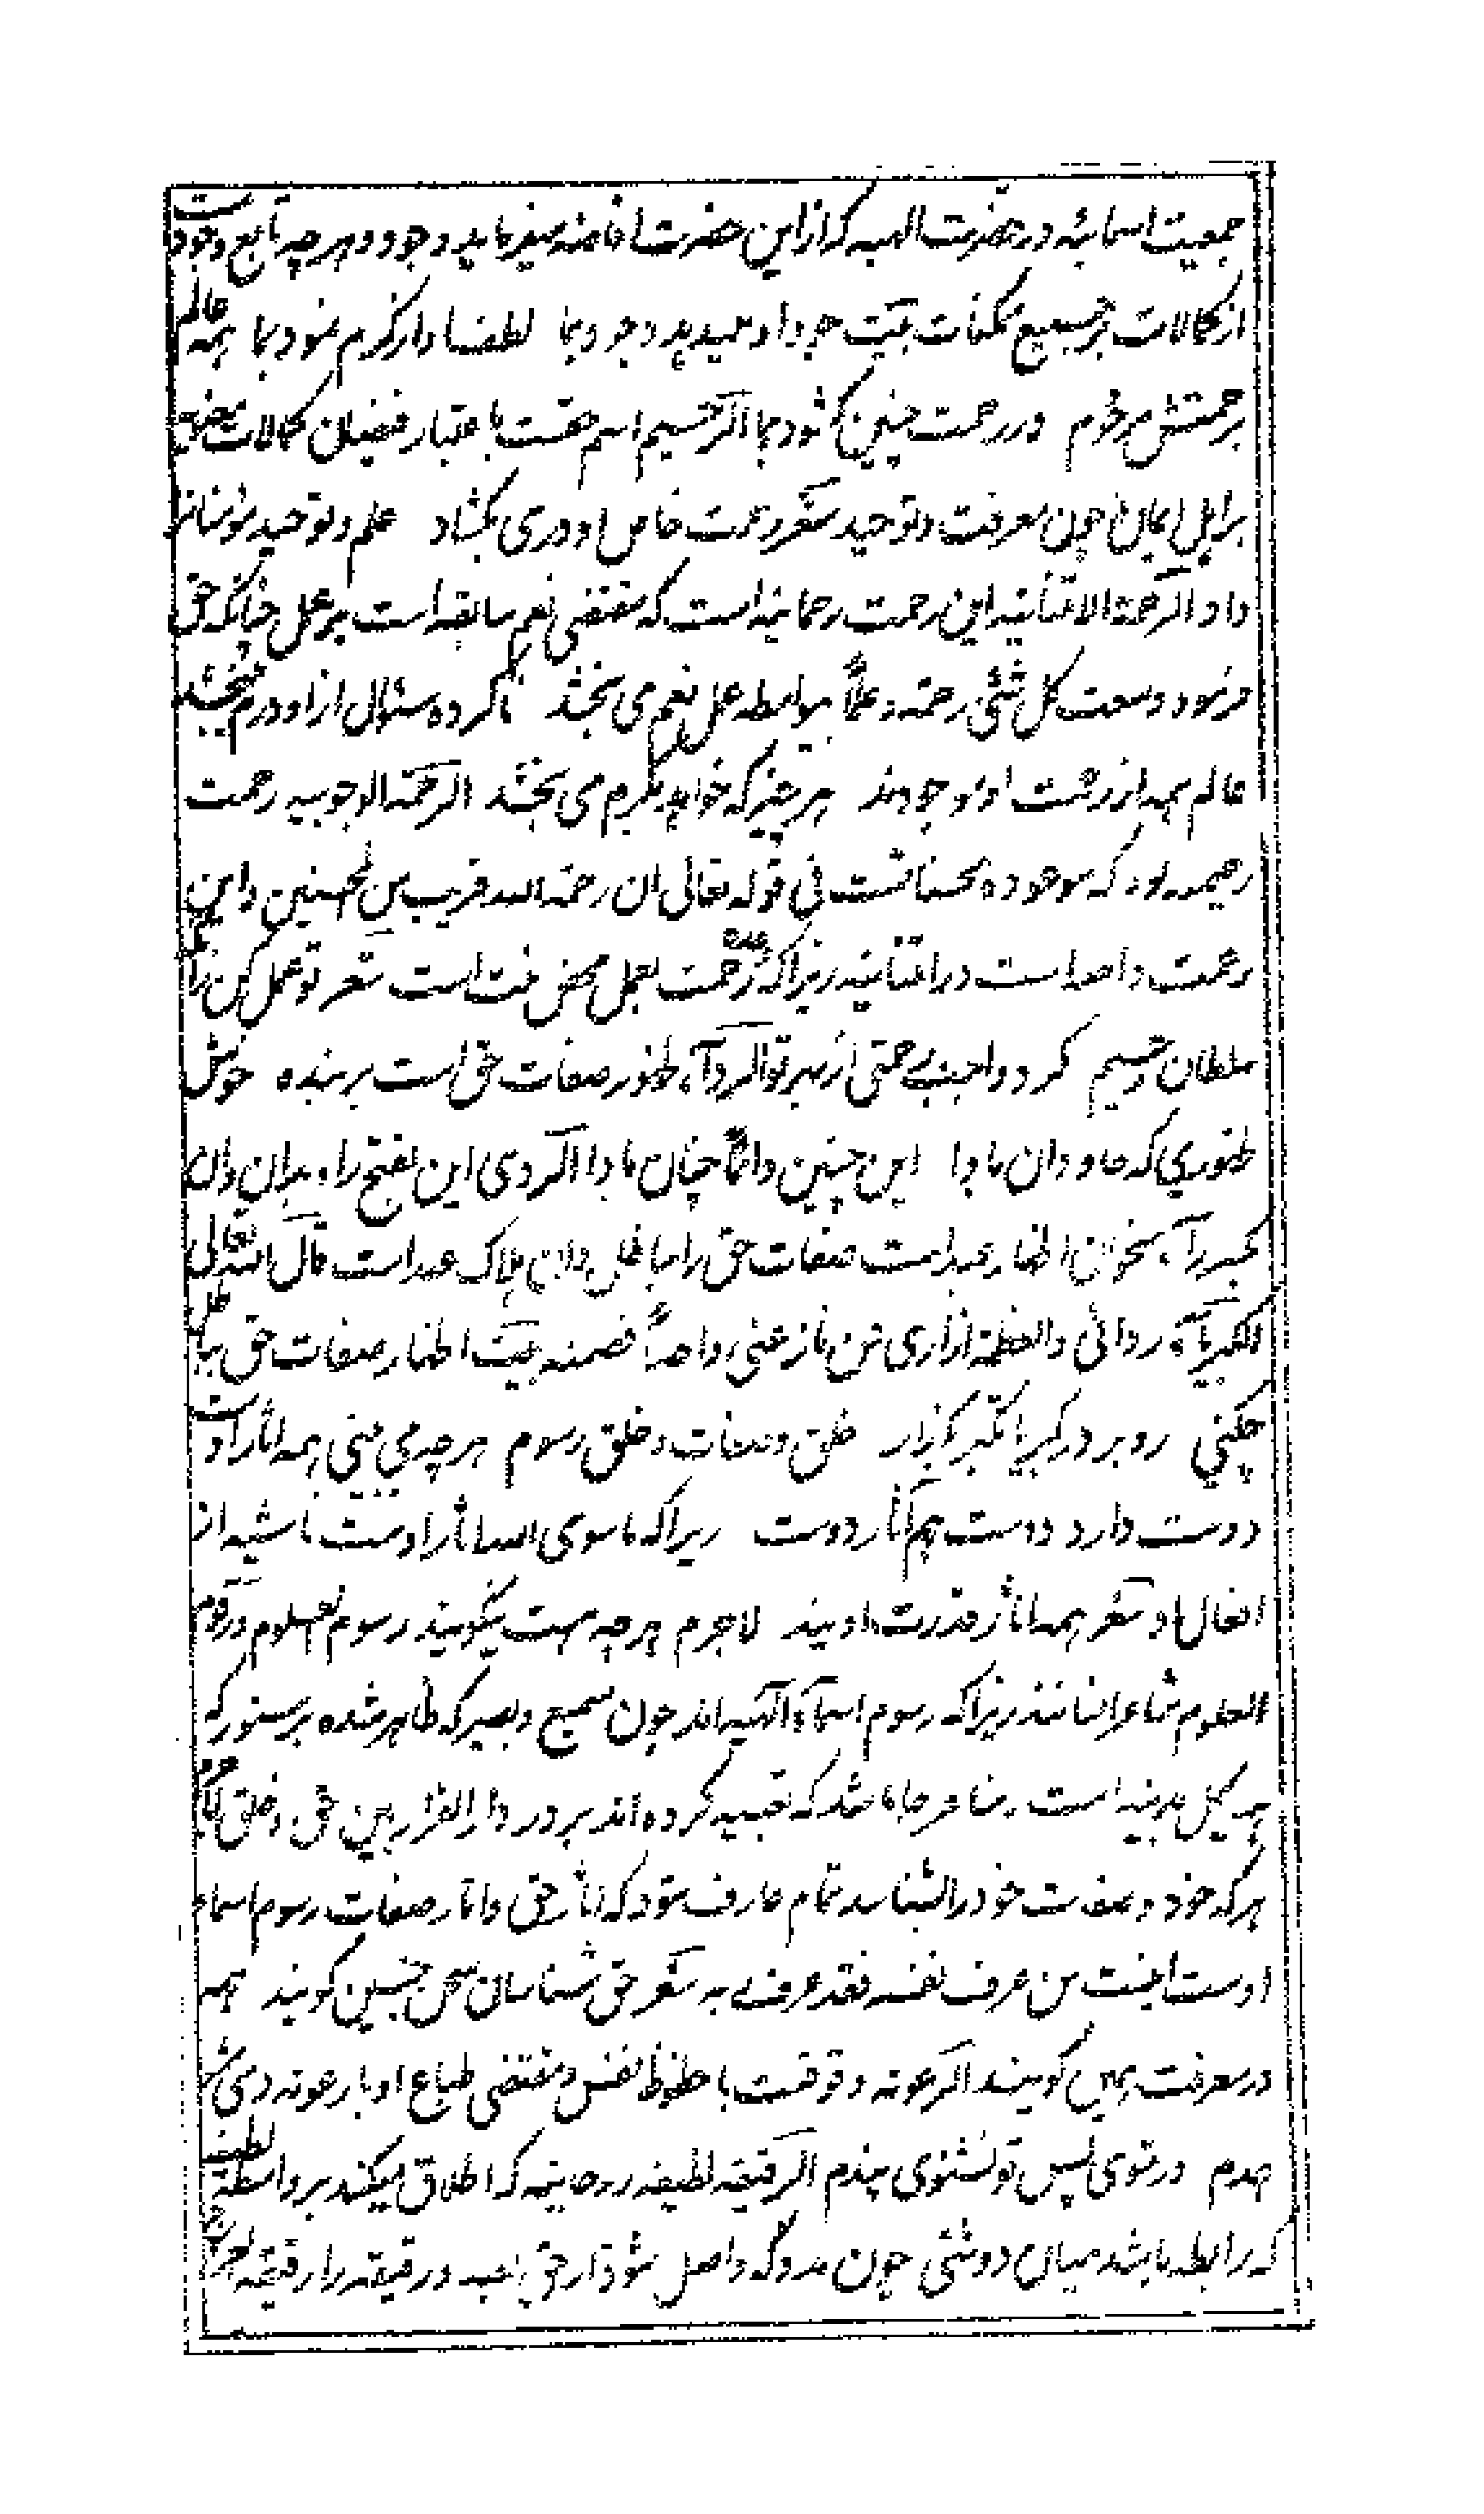 جمعیت اسمائیه در حضرت الهیه که ازین حضرت افاضه میفرماید وجود و هرچه تابع وجودست
از کمالات بر جمیع ممکنات بیت جود او میدهد وجود بما لطفها دارد کرم نمود بما همه عالم
برحمتش مرحوم در رحمت چنین کشود بما الرحیم اسم حقست باعتبار فیضان کمالات معنویه
بر اهل ایمان چون معرفت و توحید شعر رحمت خاص او دری بکشاد علم و توحید مؤمنانرا
داد الرحمة الامتنانیه این رحمت رحمانیه است که مقتضی نعم سابقه است بر عمل چنانکه حق
فرمود وسعت کل شئی رحمة و علماً بیواسطه عمل نعم می بخشد ناکرده سئوال از او درم می‌بخشد
عالم همه از رحمت او موجودند هر چیز که خواهد بکرم می بخشد الرحمة الوجوبیه رحمت
رحیمیه بود که موعوده محسنانست فی قوله تعالی ان رحمة الله قریب من المحسنین و این
رحمت داخل است در امتنانیه زیرا که وعده رحمت بعمل محض منت است شعر تو عمل کن زانکه
سلطان رحیم کرد واجب رحمتی از بهر تو الردآء ظهور صفات حق است بر بنده خوش
ظهوری که جاودان بادا این چنین دائماً چنان بادا الردی این بفتح راء بدان وان
بکسر رآء بخوان اظهار عبد است صفات حق را بباطل و این هلاک عبد است قال الله تعالی
الکبریآء ردائی و العظمة ازاری من نازعنی واحداً قصمته بیت اظهار صفات حق بباطل
چکنی رو بر در کبریا تکبر بگذار خلق و صفات و خلق رسوم هرچه می بینی همه آثار اوست
دوست دارد دوست هم آثار دوست زیرا که ما سوی الله آثار اوست ناشیه از
افعال او شعر همه آثار قدرت اویند لاجرم هرچه هست نیکویند رسوم العلوم و رقوم
العلوم مشاعر انسانند زیرا که رسوم اسمآء الهیه اند چون سمیع و بصیر که ظاهر شده بر ستور که
هیاکل بدنیه است
هر که خود و صفات خود را بشناسد تمام عارف شود که آثار حق و آثار صفات رسوم اسماء
اوست اینست من عرف نفسه فقد عرف ربه شعر حق شناسان سخن چنین کویند همه
در معرفت همین کویند الرعونه وقوفست با حظوظ نفس و مقتضی طباع او با رعونه دمی
همدم درشوی پس تو نشنوی پندم الرقیقه لطیفه روحانیه که اطلاق میکنند بر واسطه لطیفه
که رابطه باشد میان دو شئی چون مددی که واصل شود از حق بعبد و رقیقه را رقیقه